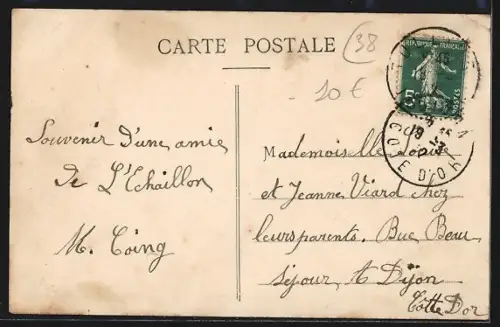 CARTE POSTALE
38
10 €
REPUBLIQUE FRANÇAISE
5c
POSTES
COTE D'OR
Souvenir d'une amie
de L'Echaillon
M. Coing
Mademoiselle Louise
et Jeanne Viard chez
leurs parents. Buc Beau
séjour, à Dijon
Côtte D'or